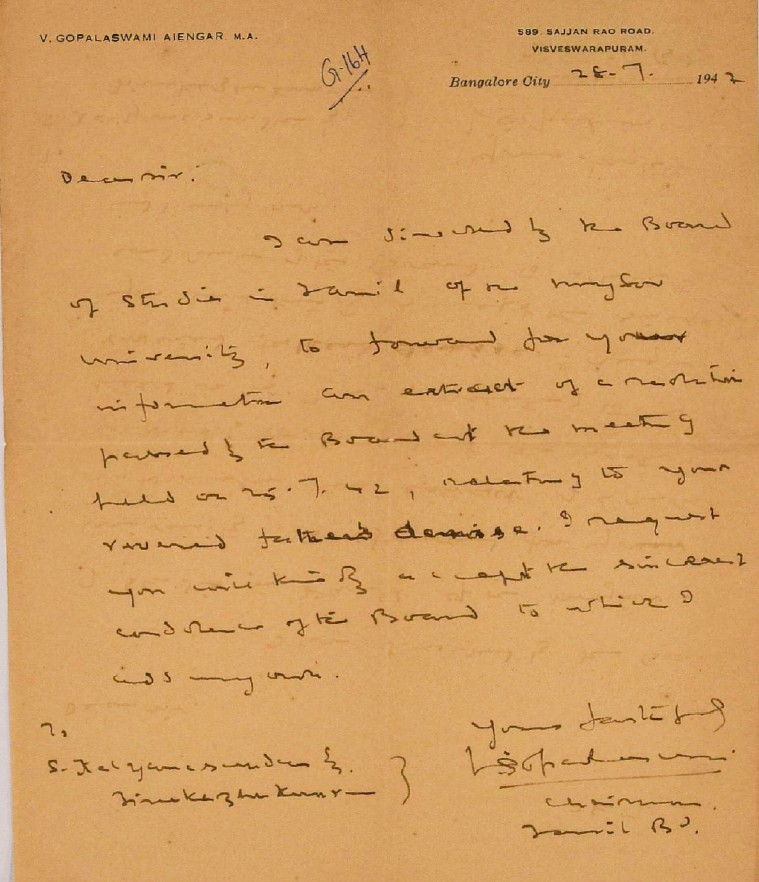 V. GOPALASWAMI AIENGAR, M.A.
589, SAJJAN RAO ROAD,
VISVESWARAPURAM.
G-16H
Bangalore City 28-7. 1942
Dear Sir,
I am directed by the Board
of Studies in Tamil of the Mysore
University, to forward for your
information an extract of a resolution
passed by the Board at the meeting
held on 25.7.42, relating to your
revered father's demise. I request
you will kindly accept the sincerest
condolences of the Board to which I
add my own.
To
S. Kalyanasundara
Yours faithfully
V. Gopalaswami
Chairman.
Tamil Bd.